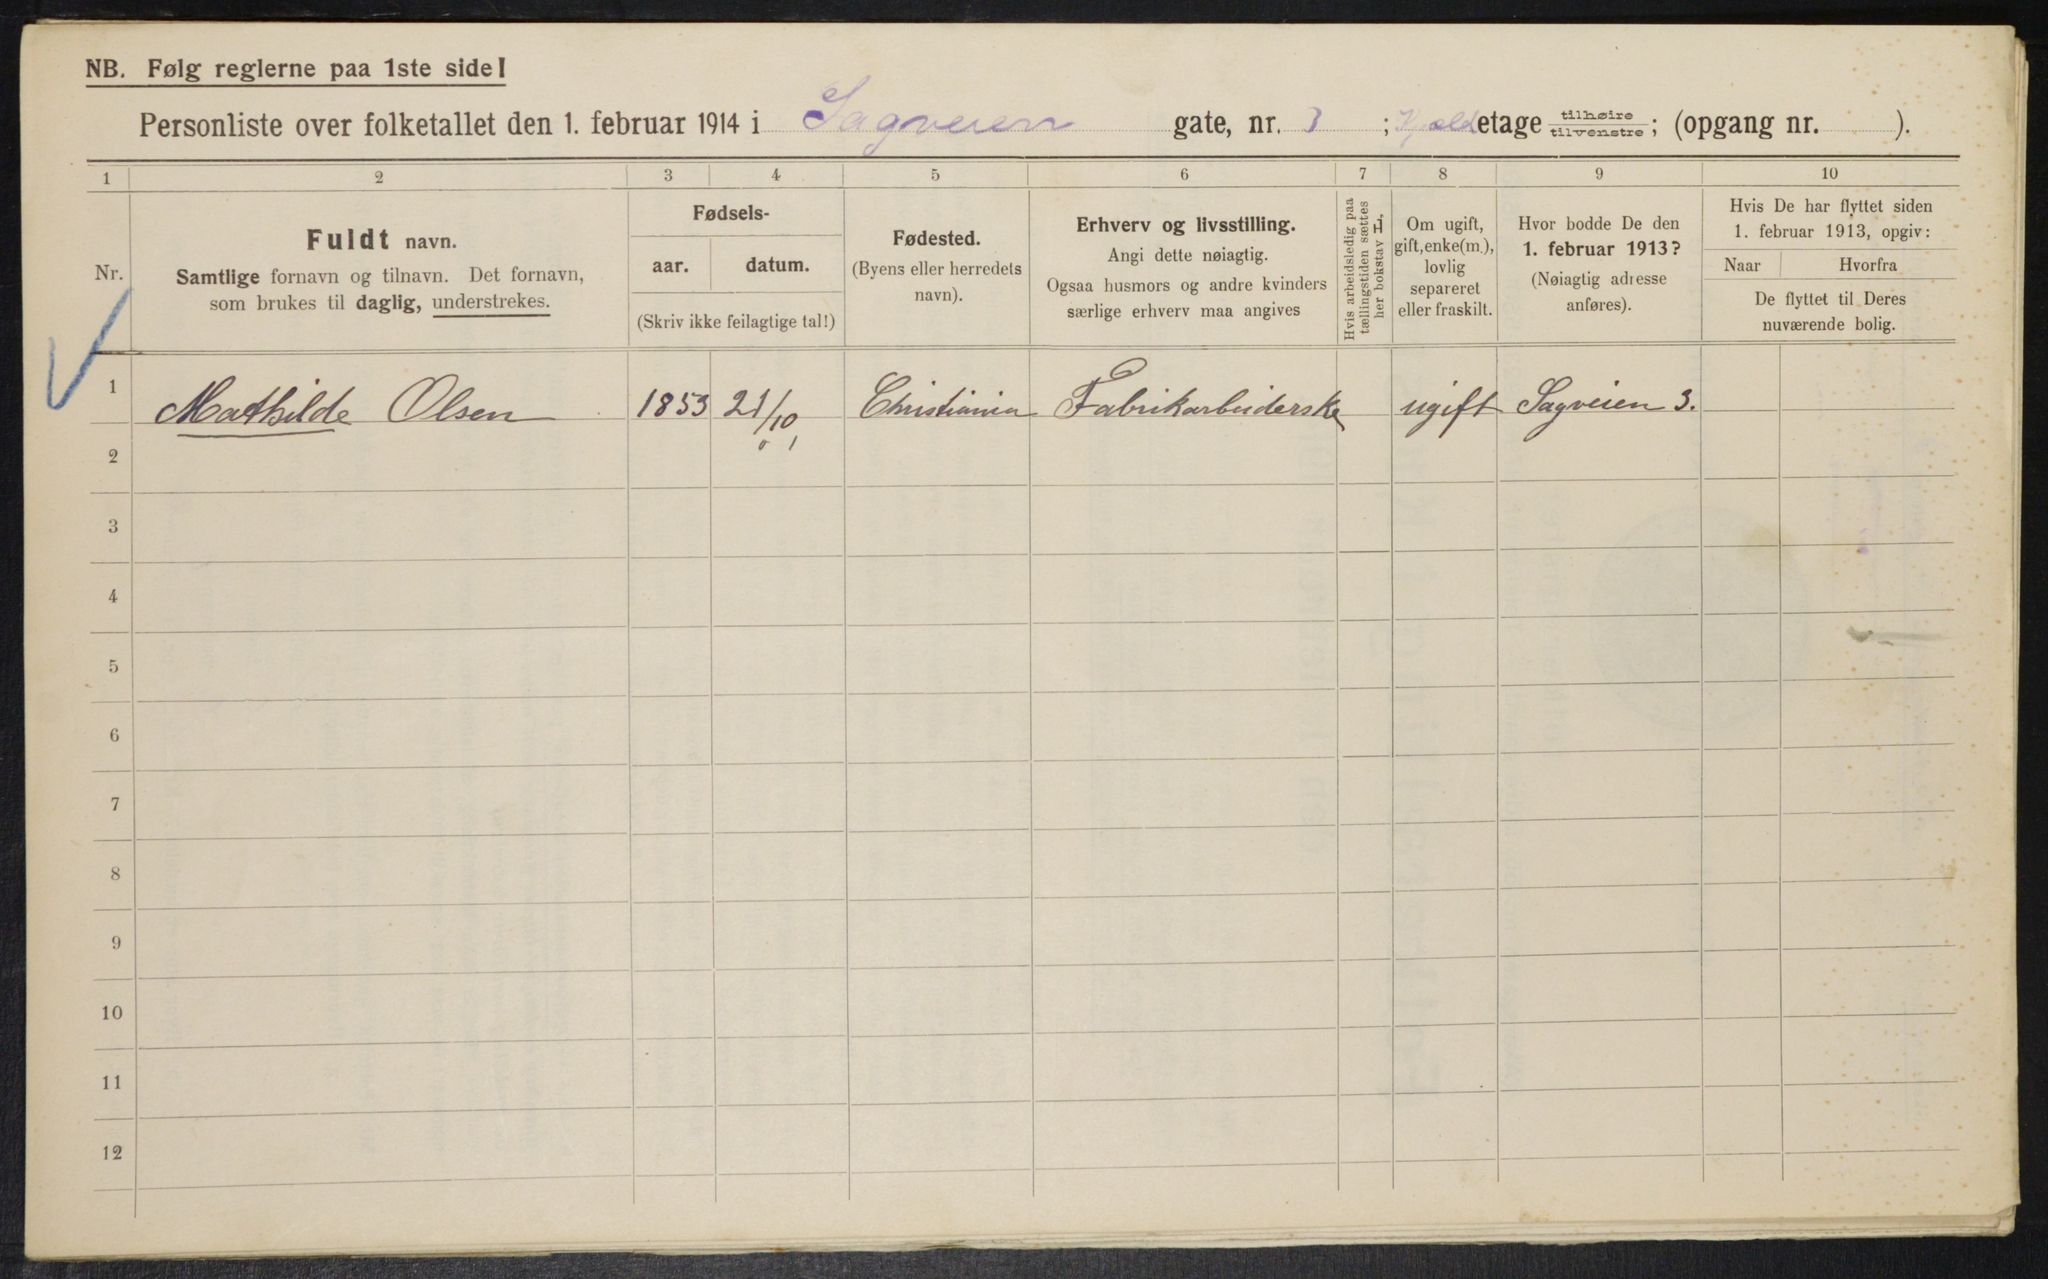 NB. Følg reglerne paa 1ste side!
Personliste over folketallet den 1. februar 1914 i Sagveien gate, nr. 3 ; Kjeld etage tilhøire tilvenstre ; (opgang nr. ).
1 2 3 4 5 6 7 8 9 10
Nr.
Fuldt navn.
Samtlige fornavn og tilnavn. Det fornavn,
som brukes til daglig, understrekes.
Fødsels-
aar. datum.
(Skriv ikke feilagtige tal!)
Fødested.
(Byens eller herredets
navn).
Erhverv og livsstilling.
Angi dette nøiagtig.
Ogsaa husmors og andre kvinders
særlige erhverv maa angives
Hvis arbeidsledig paa
tællingstiden sættes
her bokstav L.
Om ugift,
gift, enke(m.),
lovlig
separeret
eller fraskilt.
Hvor bodde De den
1. februar 1913?
(Nøiagtig adresse
anføres).
Hvis De har flyttet siden
1. februar 1913, opgiv:
Naar Hvorfra
De flyttet til Deres
nuværende bolig.
1 Mathilde Olsen 1853 21/10 Christiania Fabrikarbeiderske ugift Sagveien 3.
2
3
4
5
6
7
8
9
10
11
12